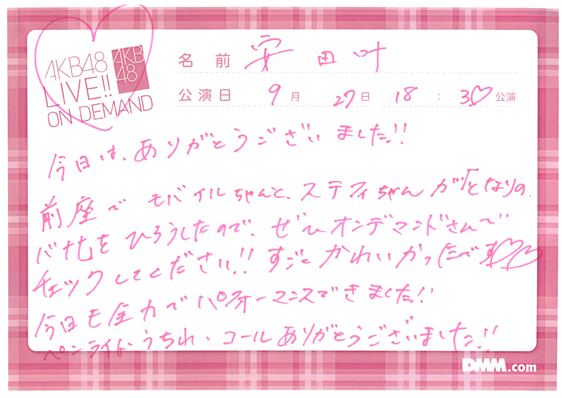 AKB48
LIVE!!
ON DEMAND
AKB
48
名前 安田叶
公演日 9月 27日 18:30公演
今日は、ありがとうございました!!
前座で モバイルちゃんと、ステフィちゃんが「となりの
バナナ」をひろうしたので、ぜひオンデマンドさんで
チェックしてください!! すごくかわいかったです♡♡
今日も全力でパフォーマンスできました!!
ペンライト、うちわ、コールありがとうございました!!
DMM.com